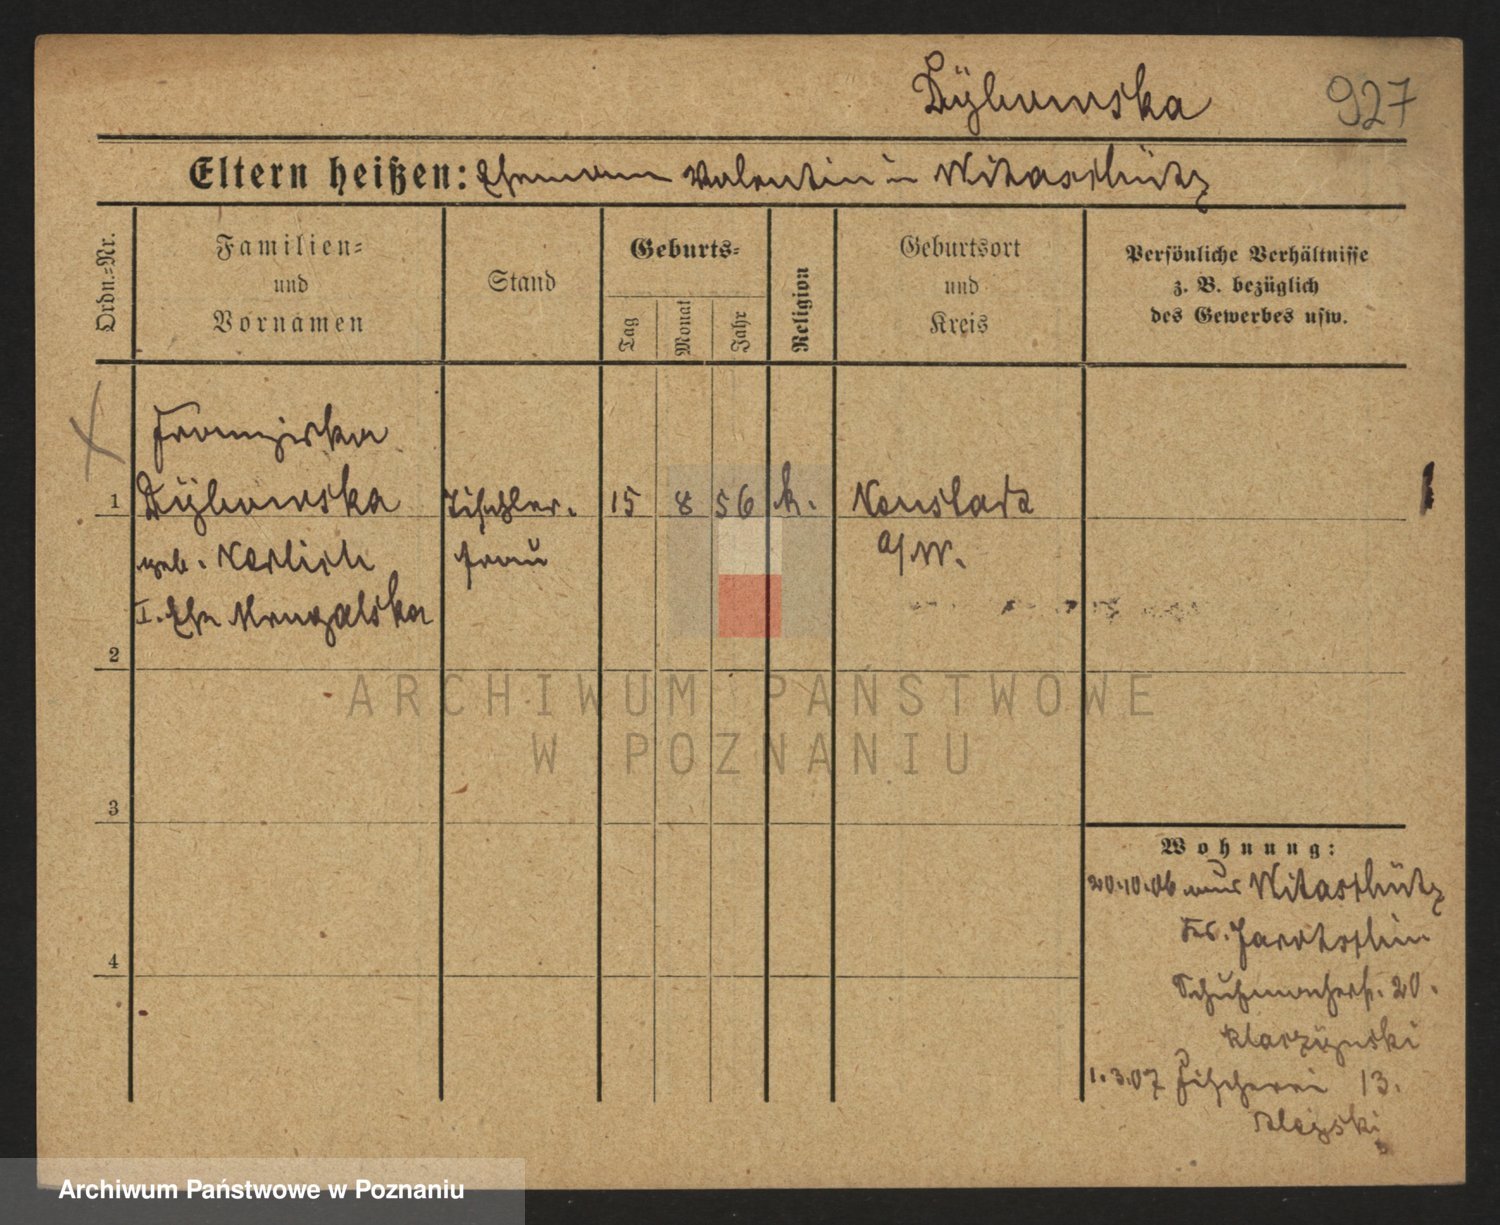 Dÿbowska 927
Eltern heißen: Ehemann Valentin in Witaschütz
Ordn.=Nr.
Familien=
und
Vornamen
Stand
Geburts=
Tag
Monat
Jahr
Religion
Geburtsort
und
Kreis
Persönliche Verhältnisse
z. B. bezüglich
des Gewerbes usw.
Franziska
1 Dÿbowska Tischler- 15 8 56 k. Neustadt
geb. frau a/W.
I. Ehe
2
3
4
Wohnung:
20.10.06 aus Witaschütz
Krs. Jarotschin
Schuhmacherstr. 20.
1.3.07 Fischerei 13.
ARCHIWUM PAŃSTWOWE
W POZNANIU
Archiwum Państwowe w Poznaniu